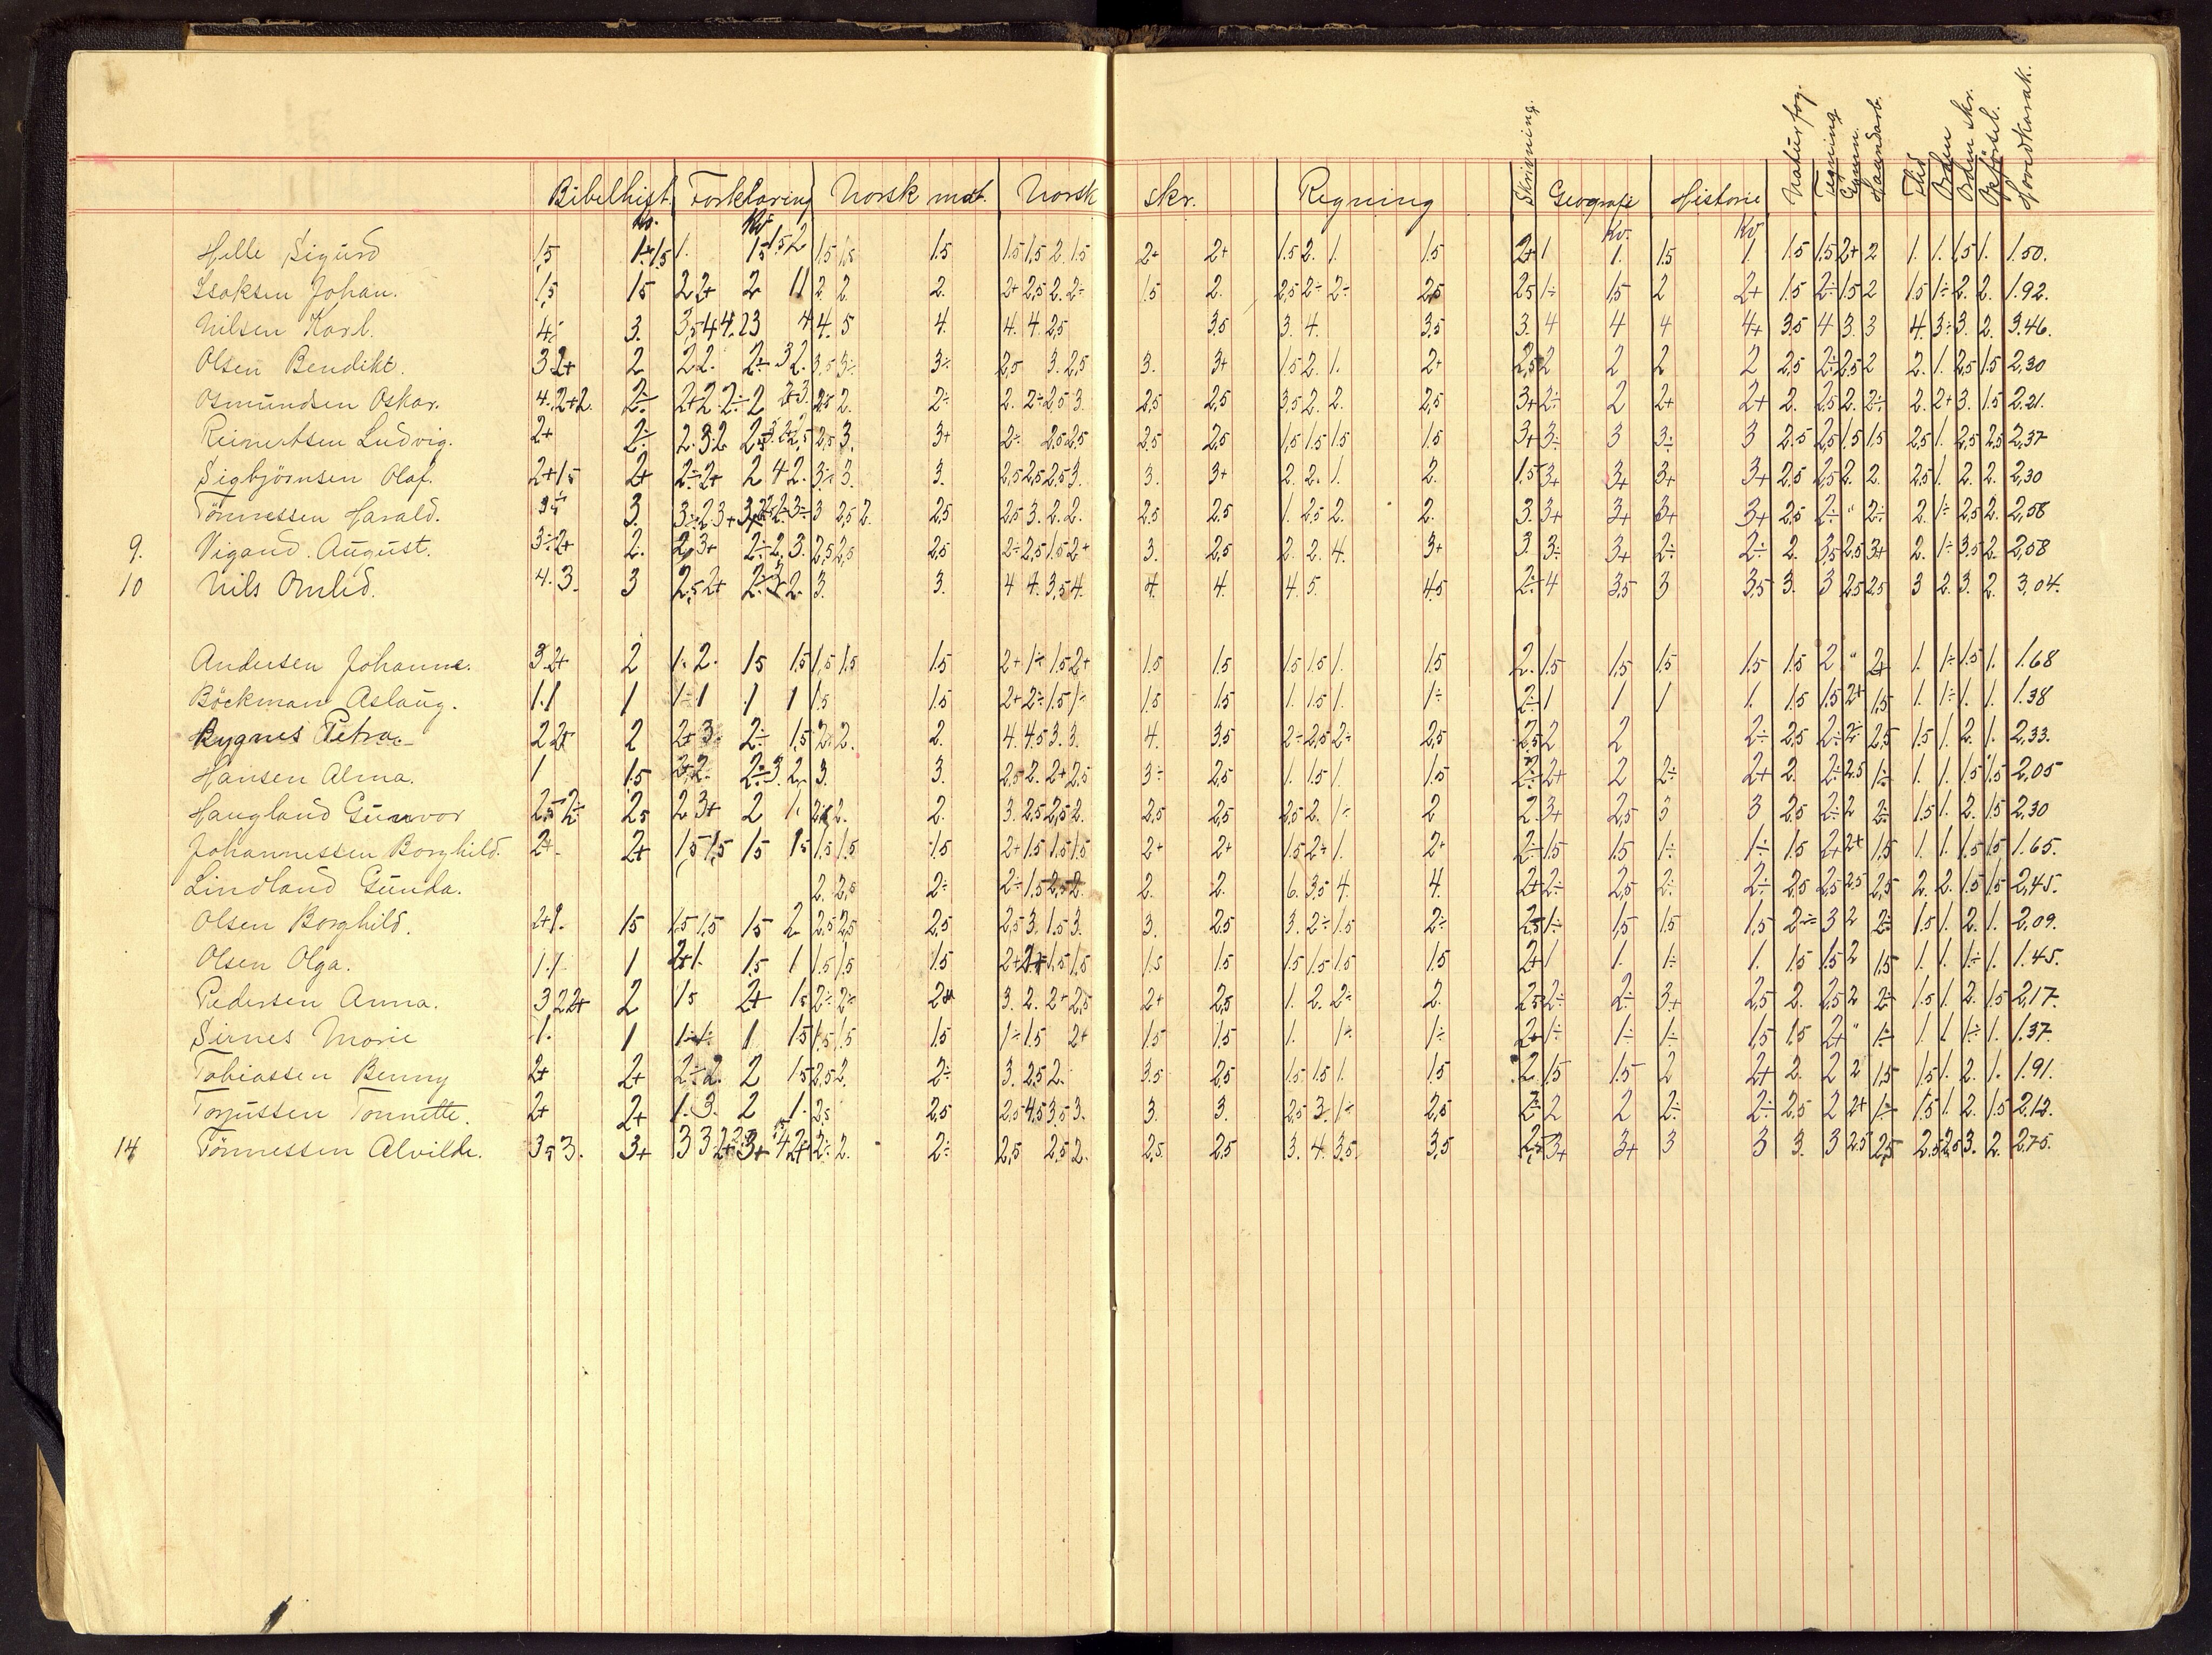 Bibelhist. Forklaring Norsk mdt. Norsk skr. Regning Skrivning Geografi Historie Naturfag. Tegning Gymn. Haandarb. Flid Orden Orden skr. Opförsel. Hovedkarak.
Kv. Kv. Kv. Kv
Helle Sigurd 1,5 1÷ 1,5 1. 1,5 1,5 2 1,5 1,5 1.5 1.5 1.5 2. 1.5 2÷ 2+ 1.5 2. 1. 1.5 2+ 1 1. 1.5 1. 1.5 1.5 2+ 2 1. 1. 1.5 1. 1.50.
Isaksen Johan. 1,5 1.5 2 2+ 2 1 1 2. 2. 2. 2+ 2,5 2. 2÷ 1.5 2. 2,5 2÷ 2÷ 2,5 2,5 1÷ 1,5 2 2+ 1.5 2÷ 1.5 2 1.5 1÷ 2. 2. 1.92.
Nilsen Karl. 4÷ 3. 3,5 4 4. 2 3 4 4. 5 4. 4. 4. 2,5 3.5 3. 4. 3.5 3. 4 4 4 4+ 3.5 4 3. 3 4. 3÷ 3. 2. 3.46.
Olsen Bendikt. 3 2+ 2 2 2. 2÷ 3 2. 3,5 3÷ 3÷ 2,5 3. 2,5 3. 3+ 1.5 2. 1. 2+ 2,5 2 2 2 2 2,5 2÷ 2,5 2 2. 1. 2,5 1.5 2,30
Osmundsen Oskar. 4. 2+ 2. 2÷ 2+ 2 2÷ 2 3+ 3. 2,5 2. 2÷ 2. 2÷ 2,5 3. 2,5 2,5 3,5 2. 2. 2,5 3+ 2÷ 2 2+ 2+ 2. 2,5 2. 2÷ 2. 2+ 3. 1.5 2.21.
Reimertsen Ludvig. 2+ 2÷ 2. 3. 2 2,5 3. 2+ 2,5 2,5 3. 3+ 2÷ 2,5 2,5 2,5 2,5 1,5 1.5 1.5 1.5 3+ 3÷ 3 3÷ 3 2.5 2,5 1.5 1.5 2,5 1. 2,5 2,5 2,37
Sigbjörnsen Olaf. 2+ 1.5 2+ 2÷ 2+ 2 4 2. 3÷ 3. 3. 2,5 2,5 2,5 3. 3. 3+ 2. 2. 1. 2. 1.5 3+ 3+ 3+ 3+ 2,5 2,5 2. 2. 2,5 1. 2. 2. 2,30
Tönnessen Harald. 3÷ 3. 3÷ 2 3+ 3 2÷ 3÷ 3 2,5 2. 2,5 2,5 3. 2. 2. 2,5 2,5 1. 2,5 2. 2. 3. 3+ 3+ 3+ 3+ 2,5 2÷ " 2÷ 2. 1÷ 2,5 2. 2,58
9. Vigand August. 3÷ 2+ 2. 2, 3+ 2÷ 2, 3. 2,5 2,5 2,5 2÷ 2,5 1.5 2+ 3. 2,5 2. 2. 4. 3+ 3. 3÷ 3+ 2÷ 2÷ 2. 3,5 2,5 3+ 2. 1÷ 3,5 2. 2,58
10 Nils Omlid. 4. 3. 3 2,5 2+ 2÷ 3 2. 3. 3. 4 4. 3,5 4. 4. 4. 4. 5. 4.5 2÷ 4 3,5 3 3,5 3. 3 2,5 2,5 3 2. 3. 2. 3,04.
Andersen Johanne. 3. 2+ 2 1. 2. 1.5 1.5 1.5 1.5 1.5 2+ 1÷ 1.5 2+ 1.5 1.5 1.5 1.5 1. 1.5 2. 1.5 1.5 1.5 1.5 1.5 2 " 2+ 1. 1÷ 1.5 1. 1.68
Böckman Aslaug. 1. 1 1 1÷ 1 1 1 1.5 1.5 2+ 2÷ 1.5 1÷ 1.5 1.5 1. 1.5 1. 1÷ 2÷ 1 1 1 1. 1.5 1.5 2+ 1,5 1. 1÷ 1. 1. 1.38
Rygnes Petra 2 2+ 2 2+ 3. 2÷ 1,5 2. 2. 2. 4. 4.5 3. 3. 4. 3.5 2÷ 2,5 2÷ 2,5 2,5 2 2 2÷ 2,5 2÷ 2÷ 2,5 1.5 1. 2. 1. 2,33.
Hansen Alma. 1 1.5 3+ 2. 2÷ 3. 2. 3. 3. 2,5 2. 2+ 2,5 3÷ 2,5 1. 1.5 1. 1.5 2÷ 2+ 2 2÷ 2+ 2. 2÷ 2.5 1÷ 1. 1. 1.5 1.5 2,05
Haugland Gunvor 2,5 2÷ 2,5 2 3+ 2 1. 2. 2. 3. 2,5 2,5 2. 2,5 2,5 2,5 2. 1÷ 2 2. 3+ 2,5 3 3 2.5 2÷ 2 2÷ 1.5 1. 2. 1.5 2,30
Johannessen Borghild. 2+ 2+ 1.5 1,5 1.5 1.5 1.5 1.5 1.5 2+ 1.5 1.5 1.5 2+ 2+ 1.5 2÷ 1. 2+ 2÷ 1.5 1.5 1÷ 1÷ 1.5 2+ 2+ 1,5 1. 1. 1.5 1.5 1.65.
Lindland Gunda. 2. 2,5 2÷ 2÷ 1.5 2,5 2. 2. 2. 6. 3.5 4. 4. 2+ 2÷ 2,5 2÷ 2÷ 2,5 2,5 2.5 2,5 2. 2. 1.5 1.5 2,45.
Olsen Borghild. 2+ 1. 1.5 1.5 1,5 1.5 2 2,5 2,5 2,5 2,5 3. 1.5 3. 3. 2.5 3. 2÷ 1.5 2÷ 2,5 1÷ 1.5 1.5 1,5 2÷ 3 2 2÷ 1.5 1. 2. 1. 2,09.
Olsen Olga. 1. 1. 1 2+ 1. 1.5 1 1.5 1.5 1.5 2+ 2+ 1.5 1.5 1.5 1.5 1.5 1.5 1.5 1.5 2+ 1 1. 1÷ 1. 1.5 1.5 2 1,5 1. 1. 1÷ 1. 1.45.
Pedersen Anna. 3 2 2+ 2 1.5 2+ 1.5 2÷ 2÷ 2 3. 2. 2+ 2,5 2+ 2,5 1. 2. 2÷ 2. 2,5 2÷ 2÷ 3+ 2,5 2. 2,5 2 2÷ 1.5 1. 2. 1.5 2,17.
Sirnes Marie 1. 1 1÷ 1÷ 1 1.5 1.5 1.5 1.5 1÷ 1.5 2+ 1.5 1.5 1. 1÷ 1÷ 2+ 1÷ 1÷ 1÷ 1,5 1.5 2+ " 1÷ 1. 1 1÷ 1. 1.37.
Tobiassen Benny 2+ 2+ 2÷ 2. 2 1.5 2,5 2. 2÷ 3. 2,5 2. 3.5 2,5 1.5 1.5 1. 1.5 2. 1.5 1.5 2 2+ 2. 2 2 1,5 1.5 1. 2. 1. 1.91.
Torjussen Tonnette. 2+ 2+ 1. 3. 2 1. 2,5 2,5 2,5 4.5 3.5 3. 3. 3. 2,5 3. 1÷ 2,5 2÷ 2 2 2÷ 2÷ 2,5 2 2+ 1÷ 1.5 1. 2. 1.5 2.12.
14 Tönnessen Alvilde. 3,5 3. 3+ 3 3 2+ 3+ 4 2+ 2÷ 2. 2÷ 2,5 2,5 2. 2,5 2,5 3. 4. 3,5 3,5 2,5 3+ 3+ 3 3 3. 3 2.5 2,5 2.5 2,5 3. 2. 2,75.